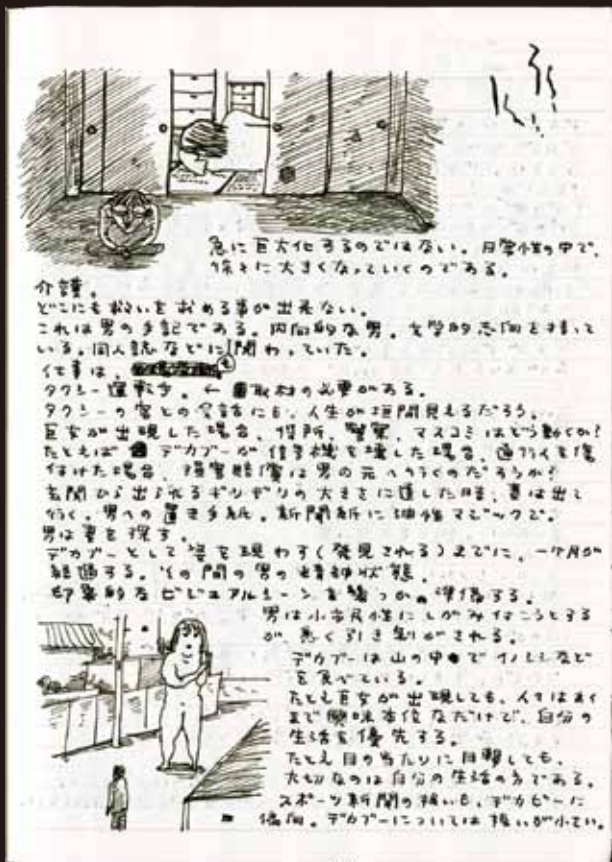 急に巨大化するのではない。日常性の中で、
徐々に大きくなっていくのである。
介護。
どこにも救いを求める事が出来ない。
これは男の手記である。内向的な男。文学的志向を持って
いる。同人誌などに関わっていた。
仕事は、
タクシー運転手。← 取材の必要がある。
タクシーの客との会話にも、人生が垣間見えるだろう。
巨女が出現した場合、役所、警察、マスコミはどう動くか?
たとえば デカブーが信号機を壊した場合、通行人を傷
付けた場合、損害賠償は男の元へ行くのだろうか?
玄関から出られるギリギリの大きさに達した時、妻は出て
行く。男への置き手紙。新聞紙に油性マジックで。
男は妻を探す。
デカブーとして姿を現わす(発見される)までに、一ヶ月が
経過する。その間の男の精神状態。
印象的なビジュアルシーンを幾つか。準備する。
男は小市民性にしがみつこうとする
が、悉く引き剥がされる。
デカブーは山の中でイノシシなど
を食べている。
たとえ巨女が出現しても、人々はあく
まで興味本位なだけで、自分の
生活を優先する。
たとえ目の当たりに目撃しても、
大切なのは自分の生活の方である。
スポーツ新聞の扱いも、デカピーに
偏向。デカブーについては扱いが小さい。